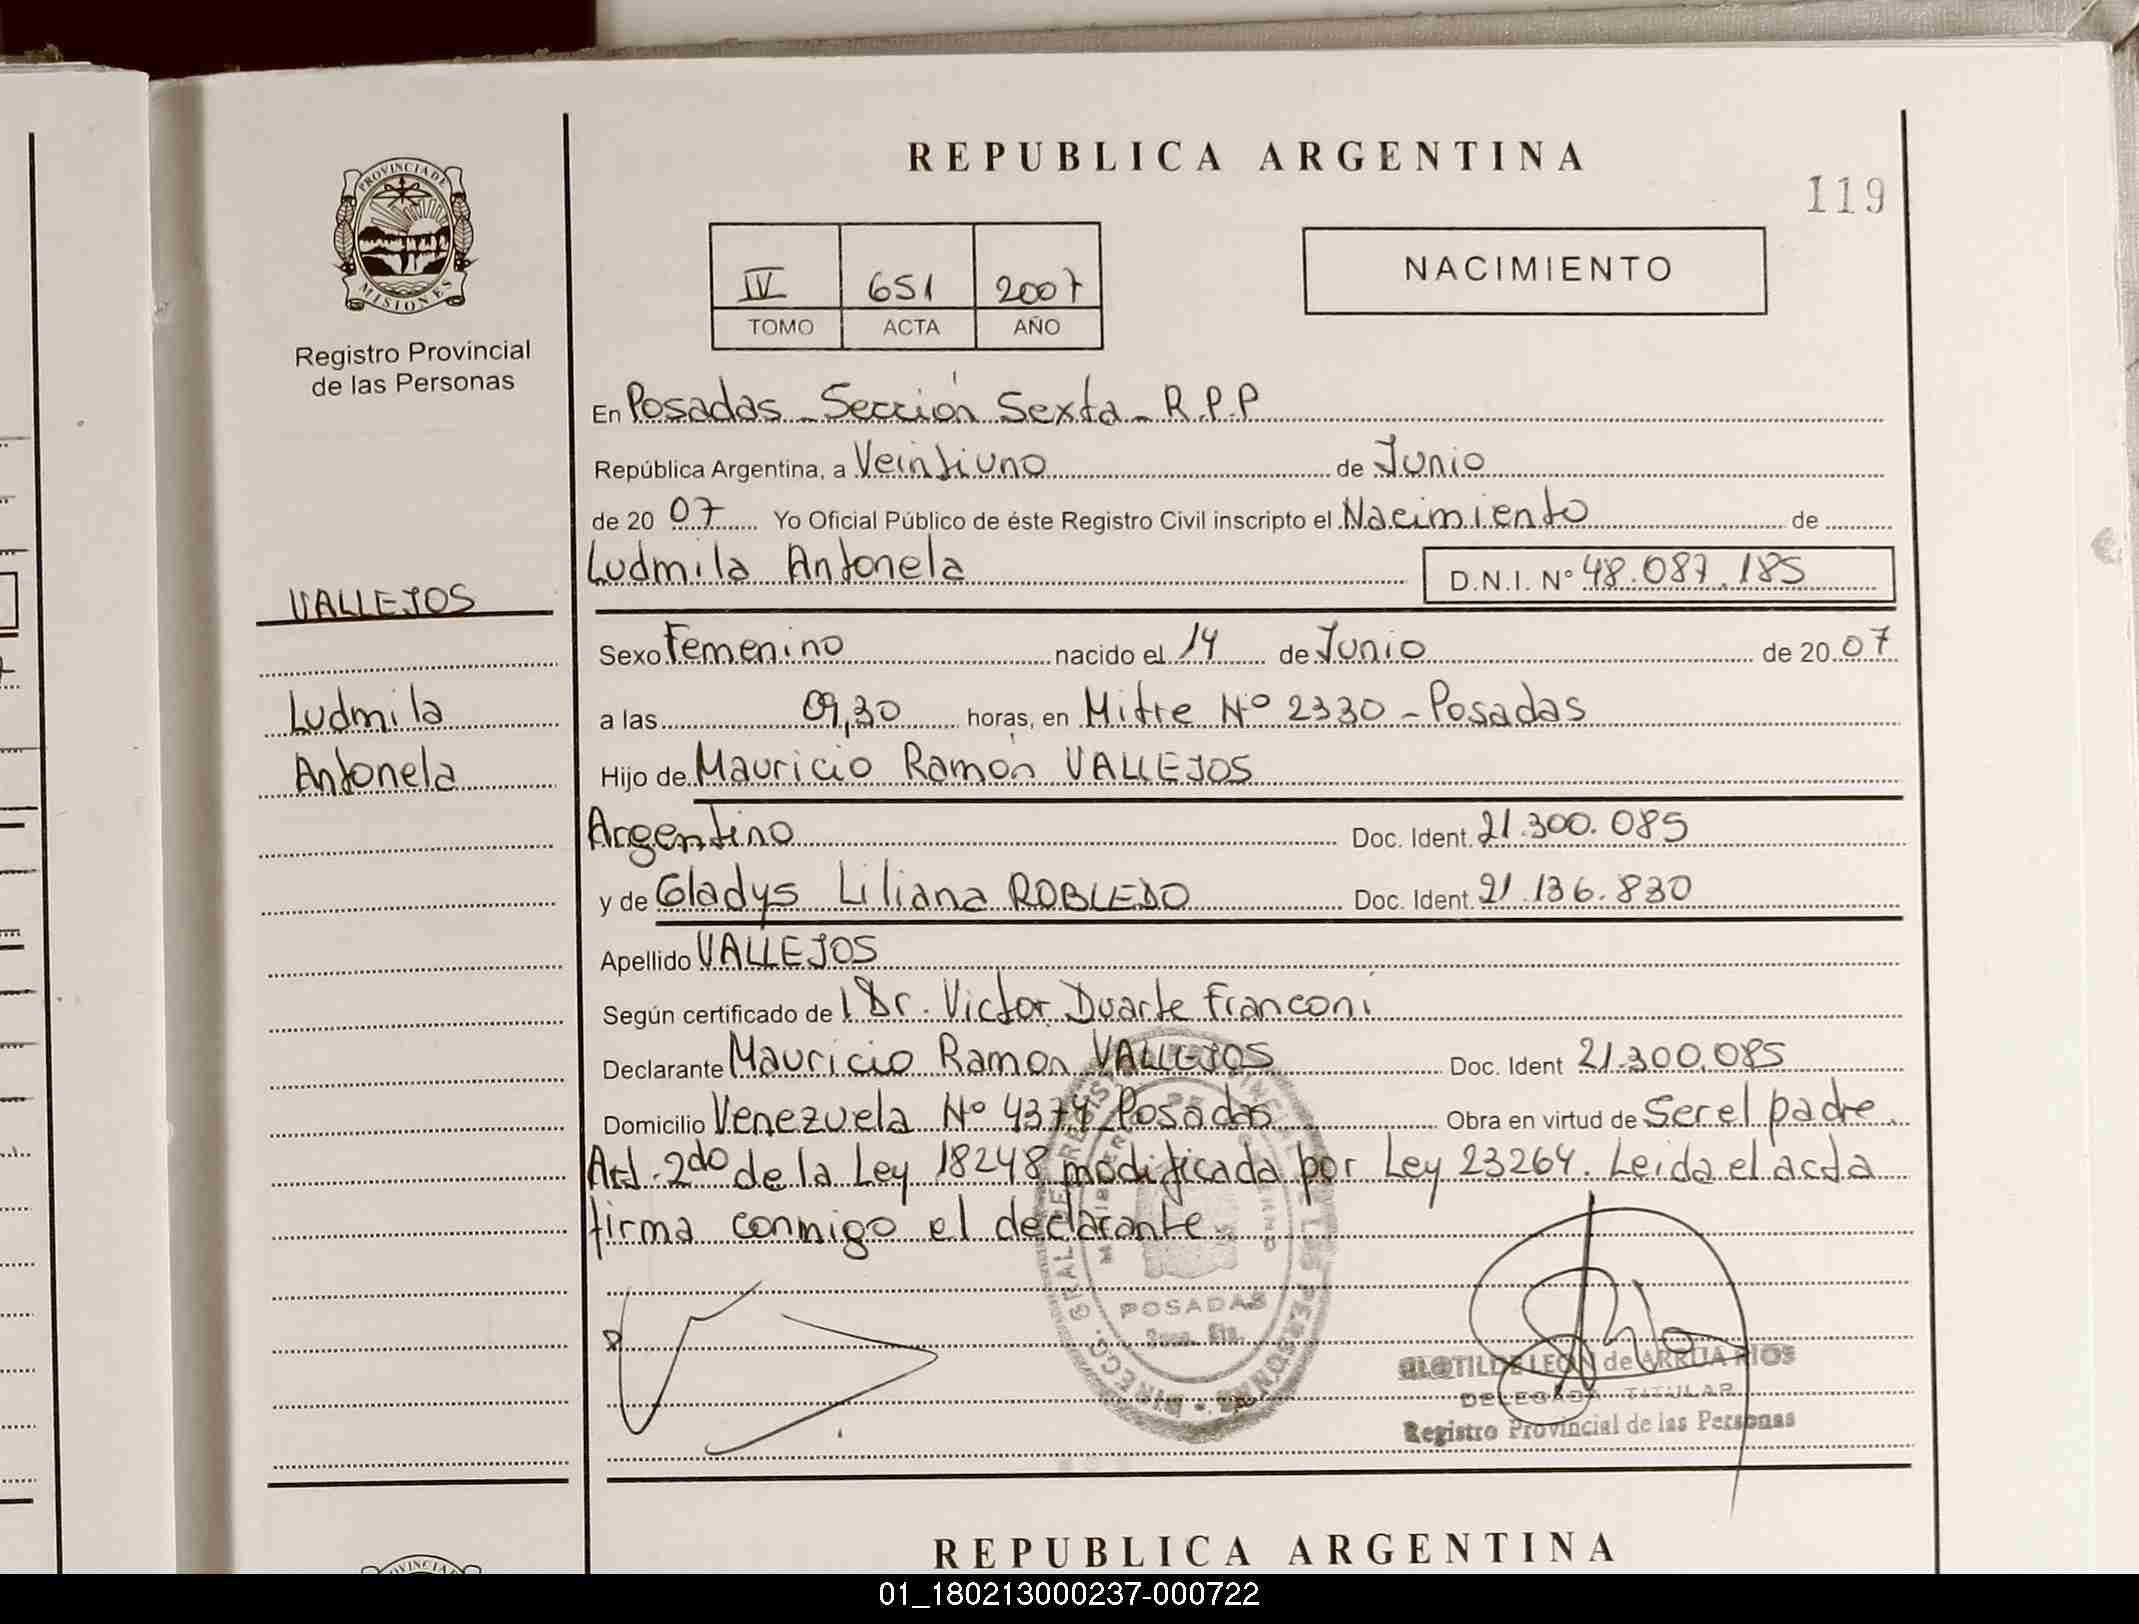 REPUBLICA ARGENTINA
119
PROVINCIA DE
MISIONES
Registro Provincial
de las Personas
IV 651 2007
TOMO ACTA AÑO
NACIMIENTO
En Posadas - Sección Sexta - R.P.P
República Argentina, a Veintiuno de Junio
de 20 07 Yo Oficial Público de éste Registro Civil inscripto el Nacimiento de
Ludmila Antonela D.N.I. Nº 48.087.185
VALLEJOS
Sexo Femenino nacido el 14 de Junio de 20 07
Ludmila
a las 09,30 horas, en Mitre Nº 2330 - Posadas
Antonela
Hijo de Mauricio Ramón VALLEJOS
Argentino Doc. Ident. 21.300.085
y de Gladys Liliana ROBLEDO Doc. Ident. 21.136.830
Apellido VALLEJOS
Según certificado de l Dr. Victor Duarte Franconi
Declarante Mauricio Ramon VALLEJOS Doc. Ident 21.300.085
Domicilio Venezuela Nº Posadas Obra en virtud de Ser el padre.
Art. 2do de la Ley 18248 modificada por Ley 23264. Leida el acta
firma conmigo el declarante.
POSADAS
CLOTILDE LEON de ARRUA RIOS
DELEGADA TITULAR
Registro Provincial de las Personas
REPUBLICA ARGENTINA
01_180213000237-000722